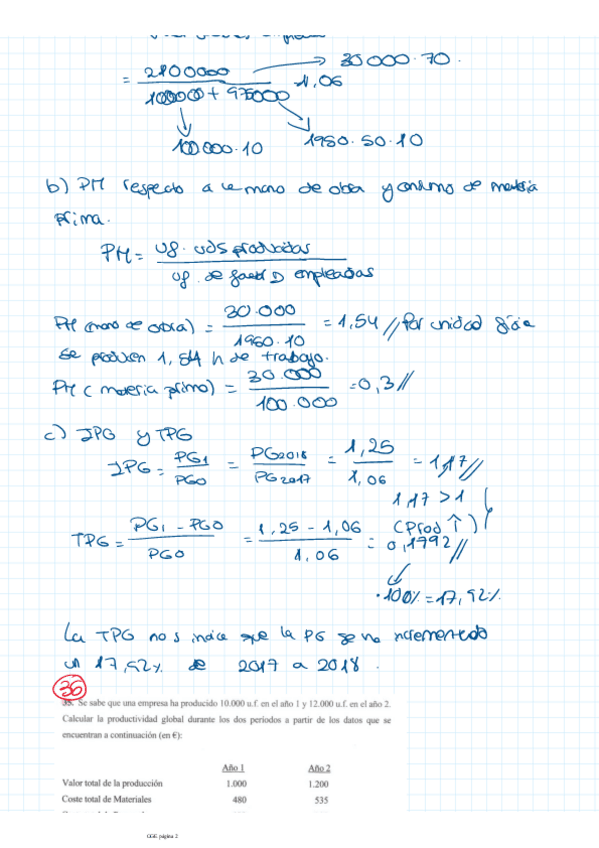 2100000 → 30000·70.
= ———— = 1,06
100000 + 975000
100000·10 1950·50·10
b) PM respecto a la mano de obra y consumo de materia
prima.
PM = Uf. uds producidas
Uf. de factor empleadas
PM (mano de obra) = 30.000 / 1950·10 = 1,54 // Por unidad física
se producen 1,54 h de trabajo.
PM (materia prima) = 30.000 / 100.000 = 0,3 //
c) IPG y TPG
IPG = PG1 / PG0 = PG2018 / PG2017 = 1,25 / 1,06 = 1,17 //
1,17 > 1
(Prod ↑)
TPG = PG1 - PG0 / PG0 = 1,25 - 1,06 / 1,06 = 0,1792 //
·100% = 17,92%
La TPG nos indica que la PG se ha incrementado
un 17,92% de 2017 a 2018.
36
35. Se sabe que una empresa ha producido 10.000 u.f. en el año 1 y 12.000 u.f. en el año 2.
Calcular la productividad global durante los dos períodos a partir de los datos que se
encuentran a continuación (en €):
Año 1 Año 2
Valor total de la producción 1.000 1.200
Coste total de Materiales 480 535
OGE página 2